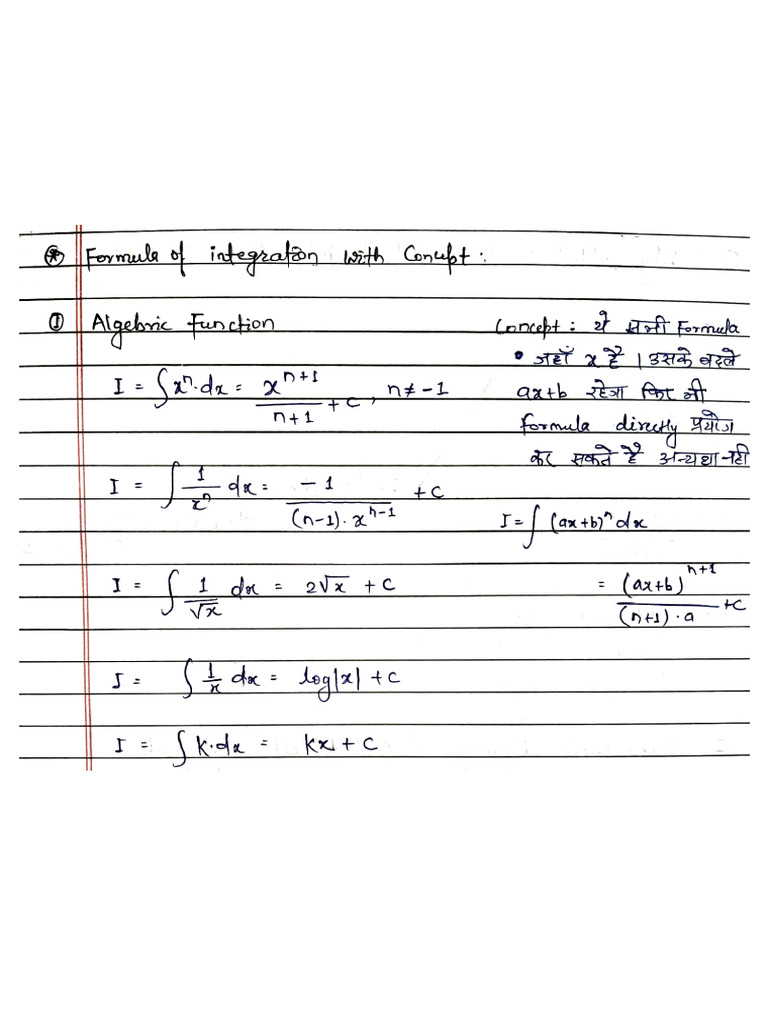 ⊛ Formula of integration with Concept :
① Algebric Function
I = ∫xⁿ·dx = xⁿ⁺¹/(n+1) + C, n ≠ -1
I = ∫ 1/xⁿ dx = -1/((n-1)·xⁿ⁻¹) + C
I = ∫ 1/√x dx = 2√x + C
I = ∫ 1/x dx = log|x| + C
I = ∫ K·dx = Kx + C
Concept : ये सभी Formula
• जहाँ x है । उसके बदले
ax+b रहेगा फिर भी
formula directly प्रयोग
कर सकते है अन्यथा नही
I = ∫ (ax+b)ⁿ dx
= (ax+b)ⁿ⁺¹/((n+1)·a) + C